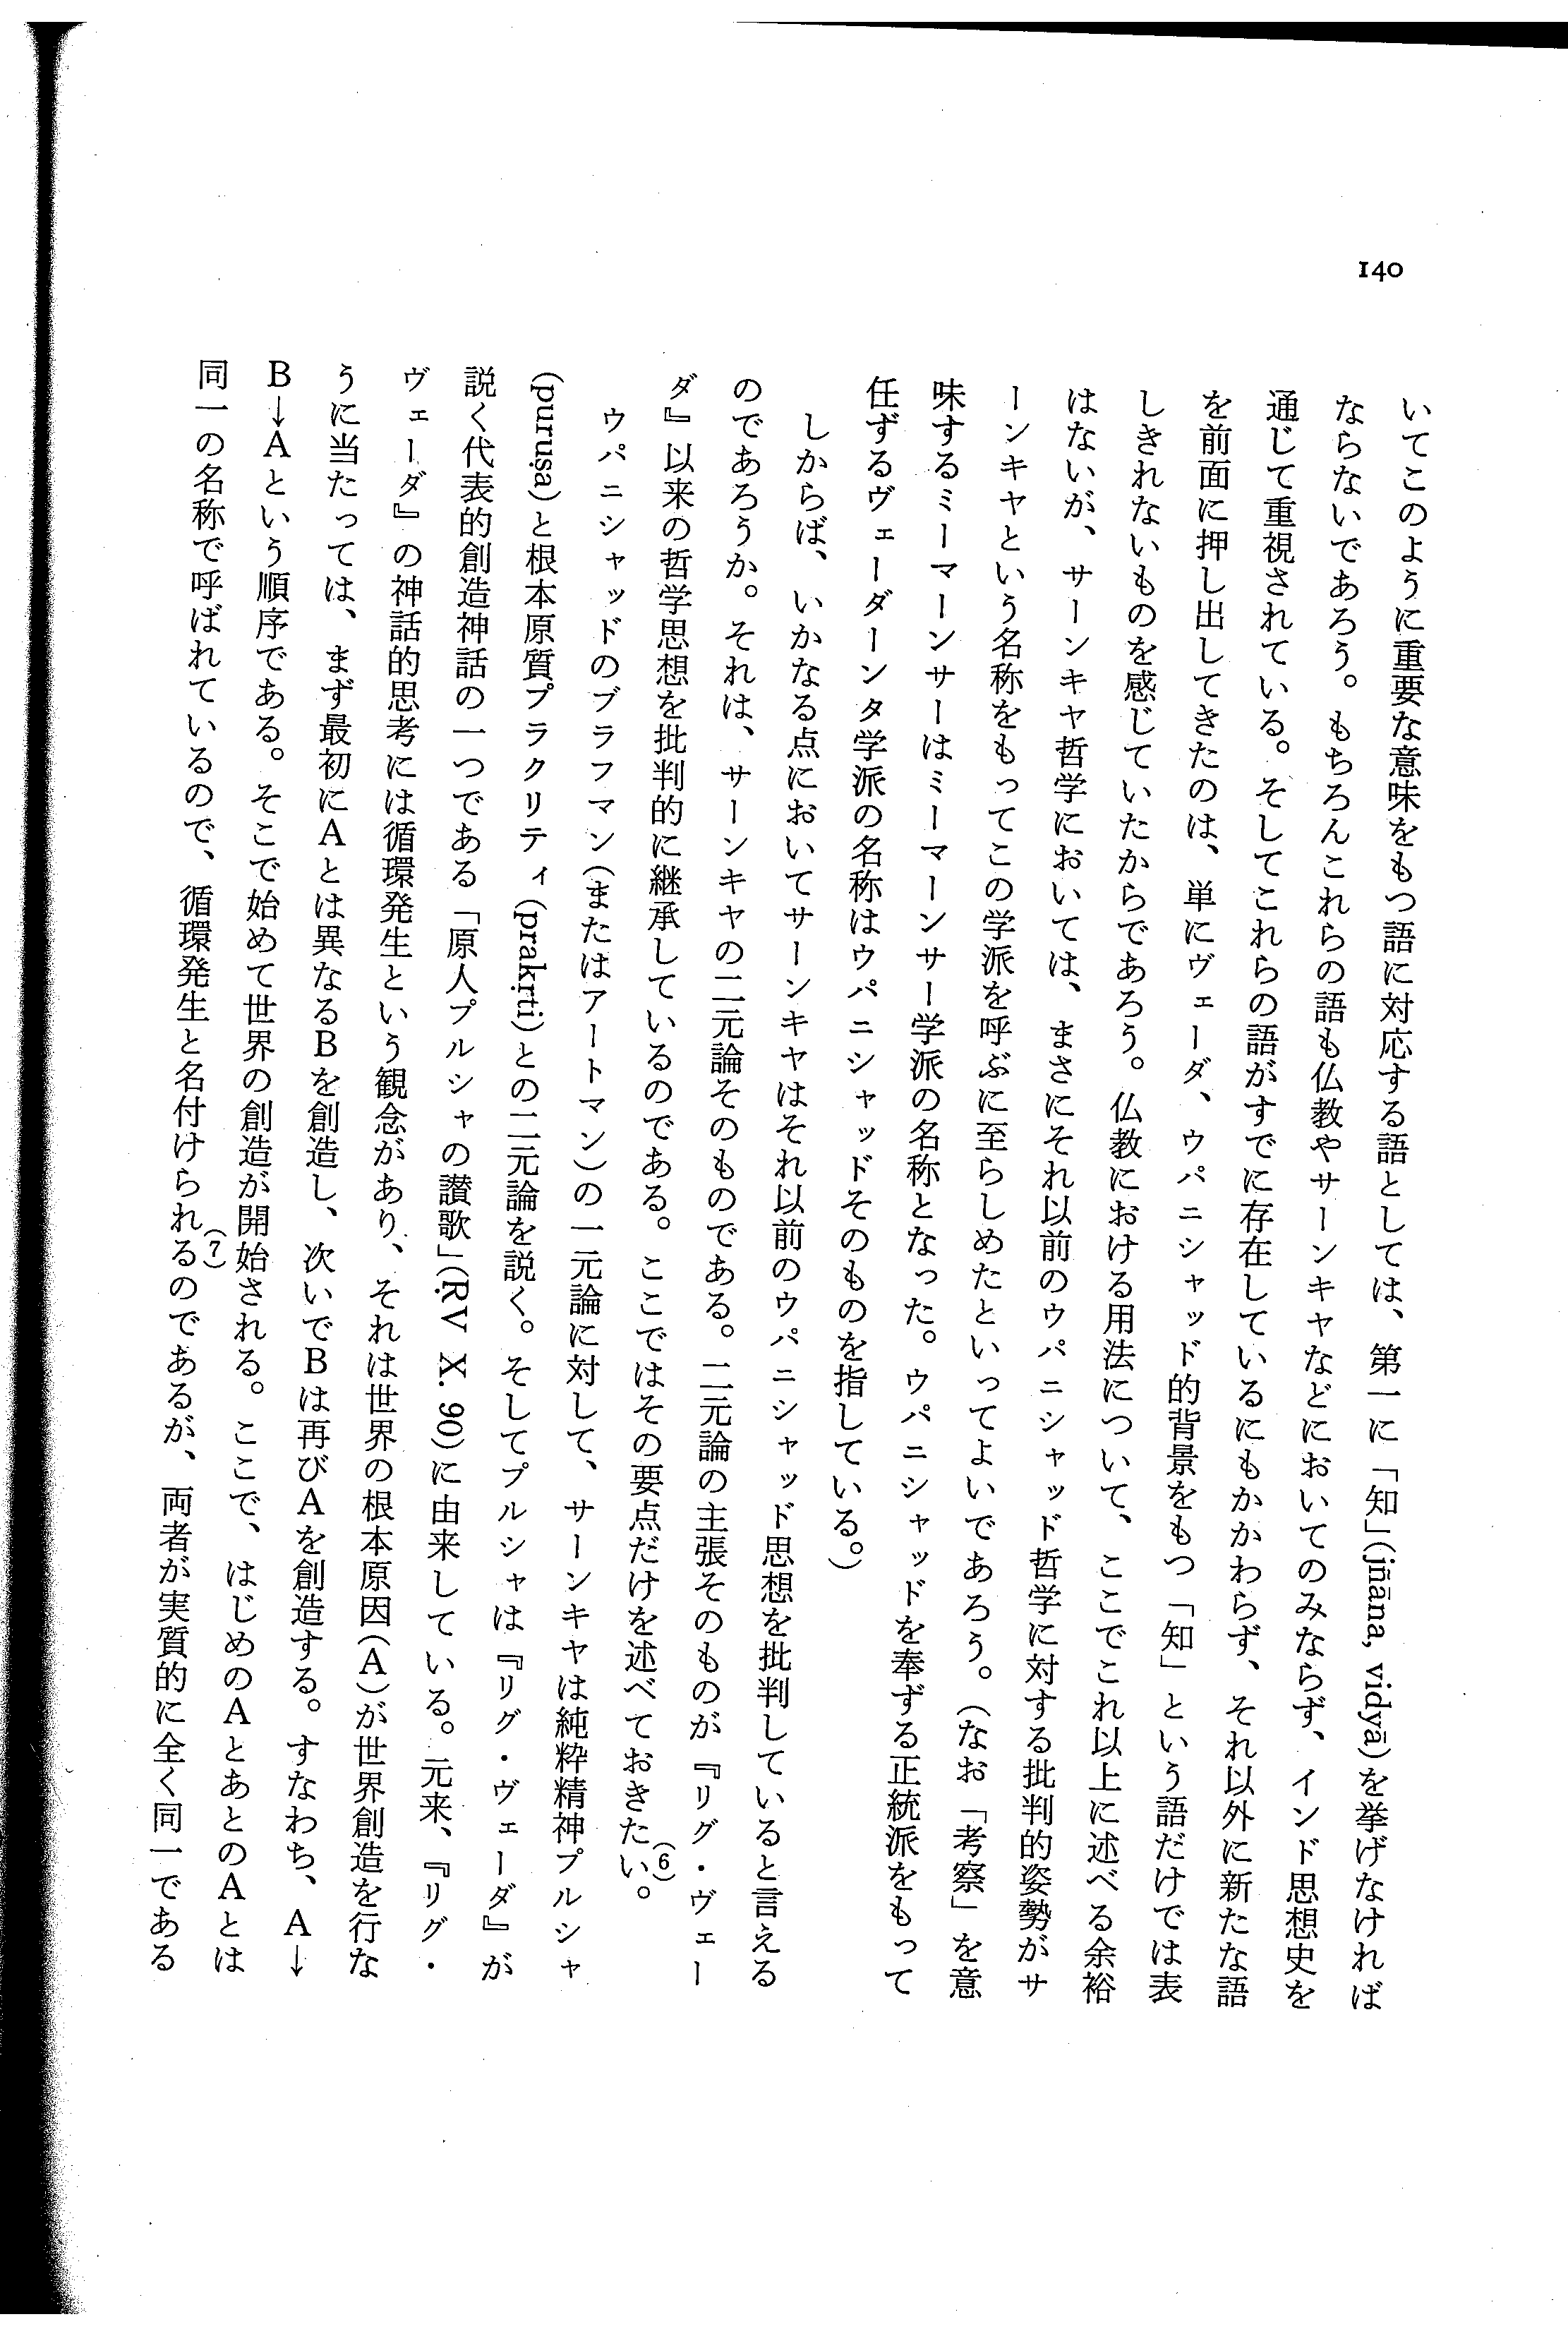 140
いてこのように重要な意味をもつ語に対応する語としては、第一に「知」(jñāna, vidyā)を挙げなければ
ならないであろう。もちろんこれらの語も仏教やサーンキヤなどにおいてのみならず、インド思想史を
通じて重視されている。そしてこれらの語がすでに存在しているにもかかわらず、それ以外に新たな語
を前面に押し出してきたのは、単にヴェーダ、ウパニシャッド的背景をもつ「知」という語だけでは表
しきれないものを感じていたからであろう。仏教における用法について、ここでこれ以上に述べる余裕
はないが、サーンキヤ哲学においては、まさにそれ以前のウパニシャッド哲学に対する批判的姿勢がサ
ーンキヤという名称をもってこの学派を呼ぶに至らしめたといってよいであろう。(なお「考察」を意
味するミーマーンサーはミーマーンサー学派の名称となった。ウパニシャッドを奉ずる正統派をもって
任ずるヴェーダーンタ学派の名称はウパニシャッドそのものを指している。)
しからば、いかなる点においてサーンキヤはそれ以前のウパニシャッド思想を批判していると言える
のであろうか。それは、サーンキヤの二元論そのものである。二元論の主張そのものが『リグ・ヴェー
ダ』以来の哲学思想を批判的に継承しているのである。ここではその要点だけを述べておきたい。(6)
ウパニシャッドのブラフマン(またはアートマン)の一元論に対して、サーンキヤは純粋精神プルシャ
(puruṣa)と根本原質プラクリティ(prakṛti)との二元論を説く。そしてプルシャは『リグ・ヴェーダ』が
説く代表的創造神話の一つである「原人プルシャの讃歌」(ṚV X. 90)に由来している。元来、『リグ・
ヴェーダ』の神話的思考には循環発生という観念があり、それは世界の根本原因(A)が世界創造を行な
うに当たっては、まず最初にAとは異なるBを創造し、次いでBは再びAを創造する。すなわち、A→
B→Aという順序である。そこで始めて世界の創造が開始される。ここで、はじめのAとあとのAとは
同一の名称で呼ばれているので、循環発生と名付けられる(7)のであるが、両者が実質的に全く同一である